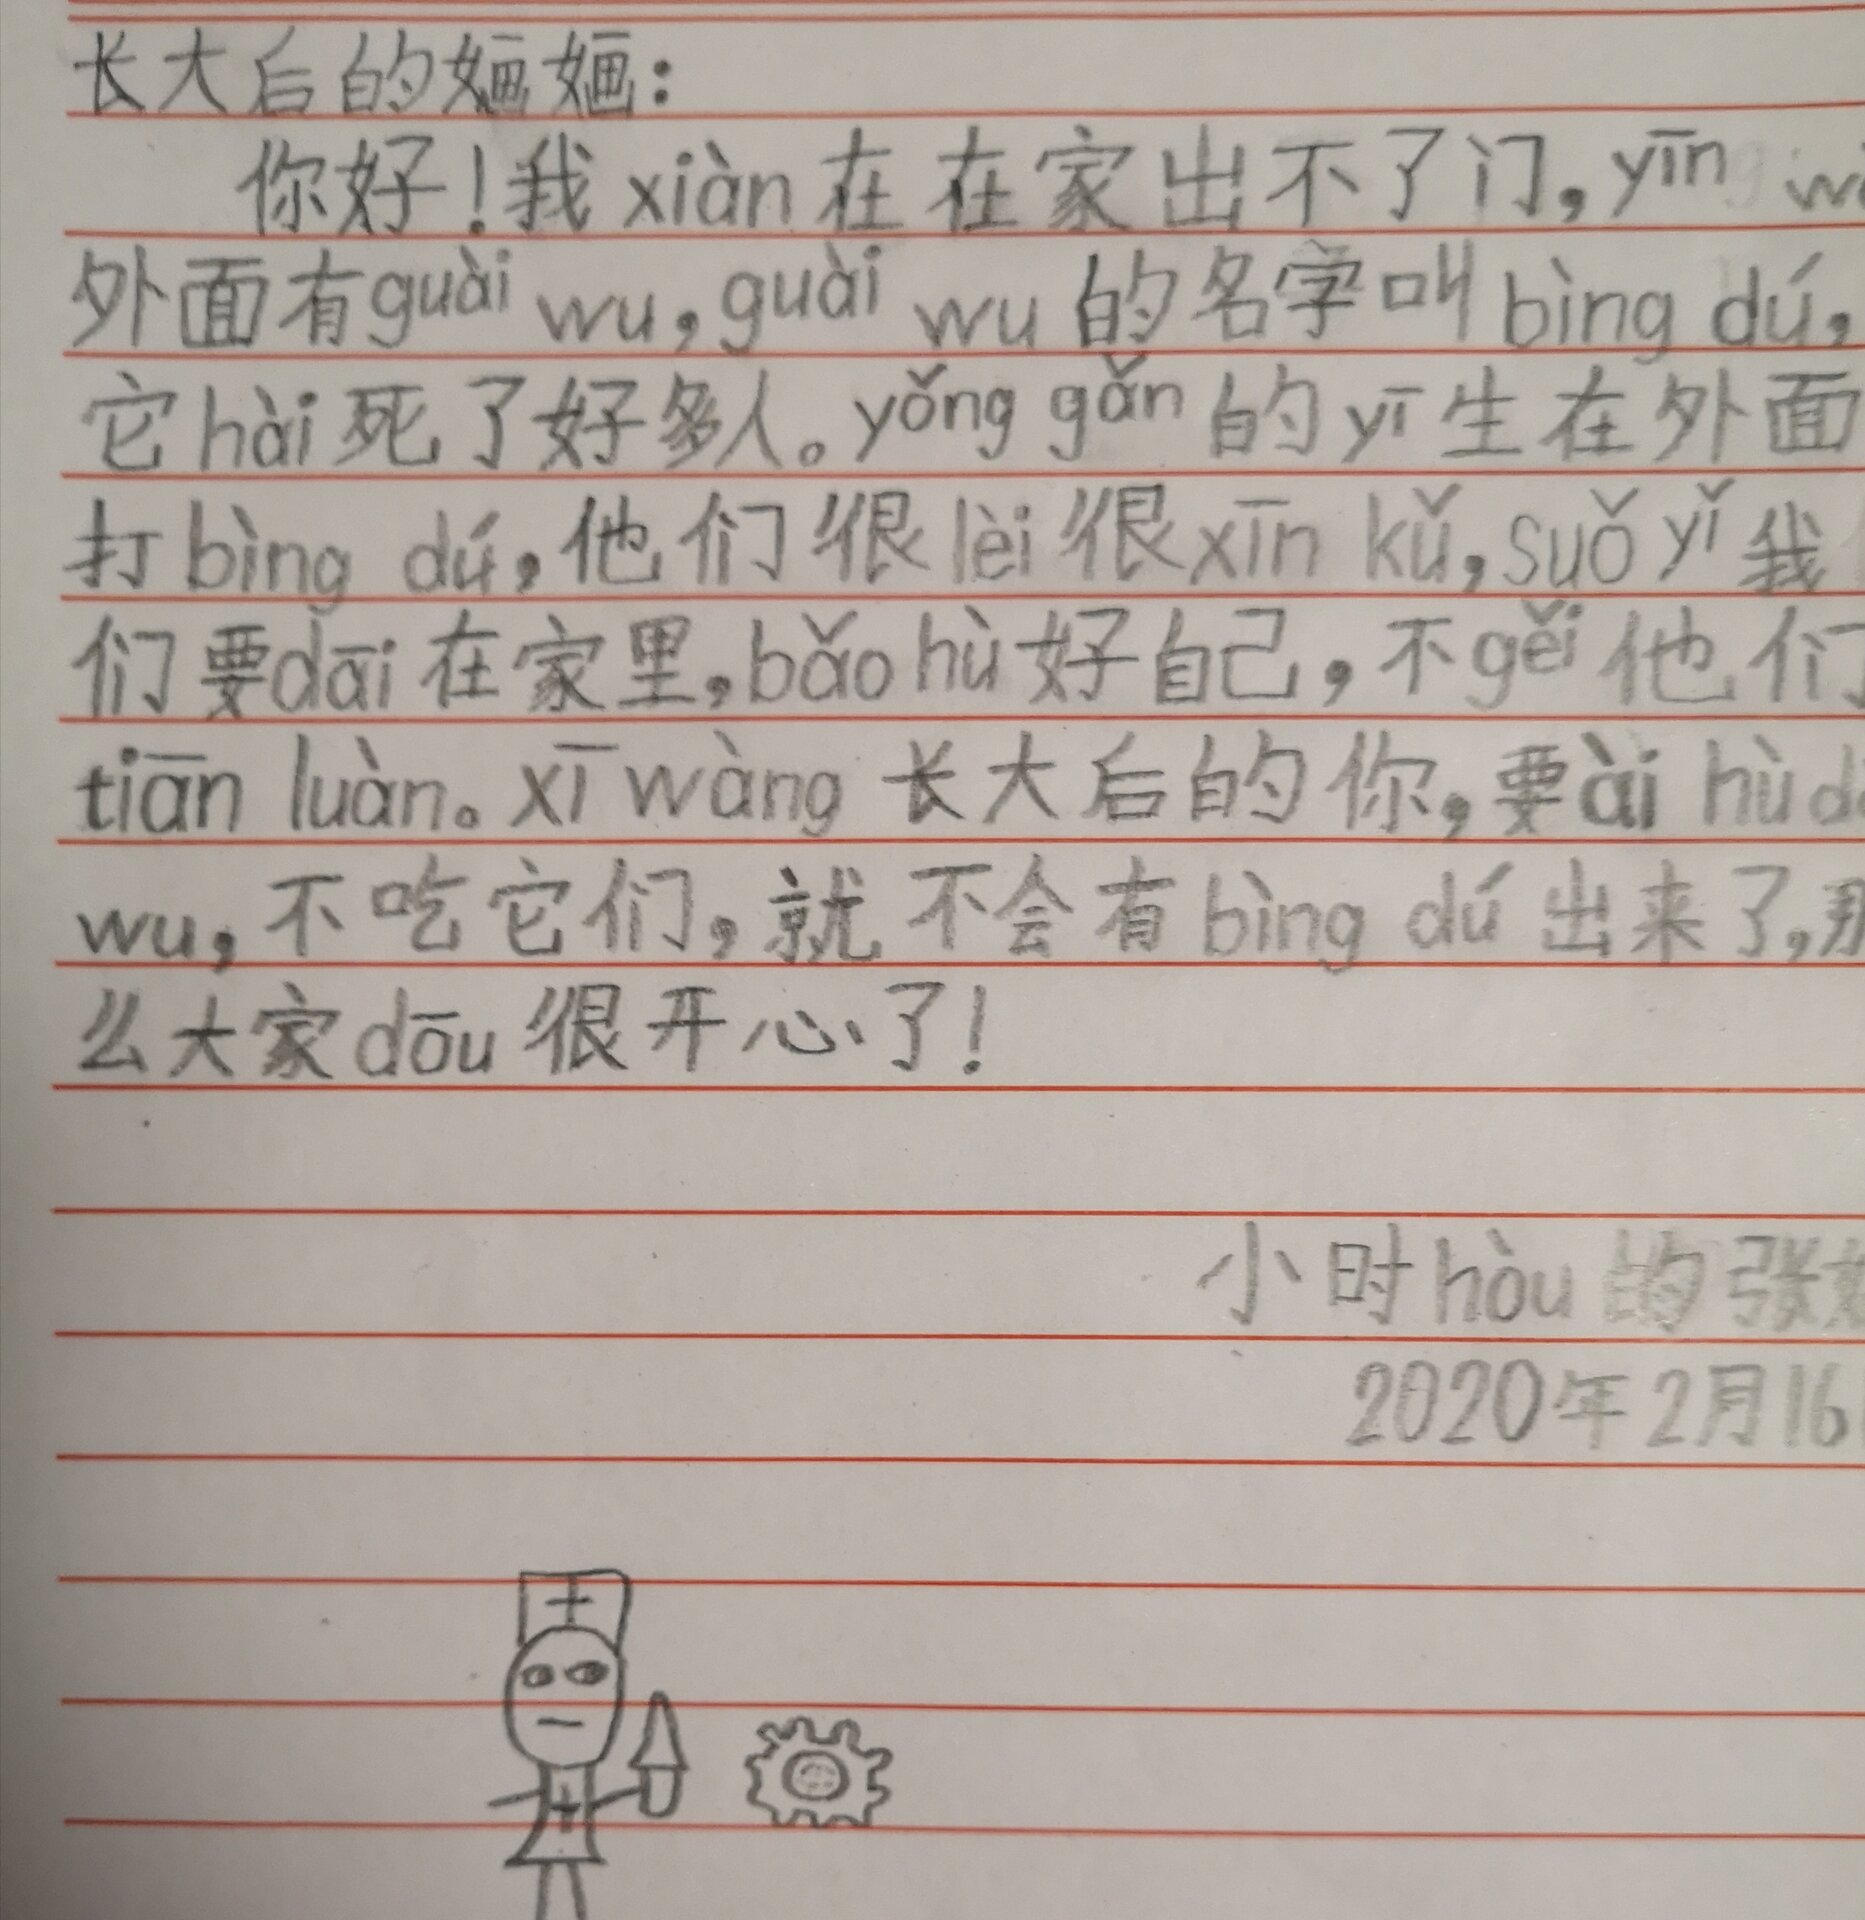 长大后的婳婳：
你好！我xiàn在在家出不了门，yīn
外面有guài wu，guài wu的名字叫bìng dú，
它hài死了好多人。yǒng gǎn的yī生在外面
打bìng dú，他们很lèi很xīn kǔ，suǒ yǐ我
们要dāi在家里，bǎo hù好自己，不gěi他们
tiān luàn。xī wàng长大后的你，要ài hù
wu，不吃它们，就不会有bìng dú出来了，那
么大家dōu很开心了！
小时hòu的张
2020年2月16